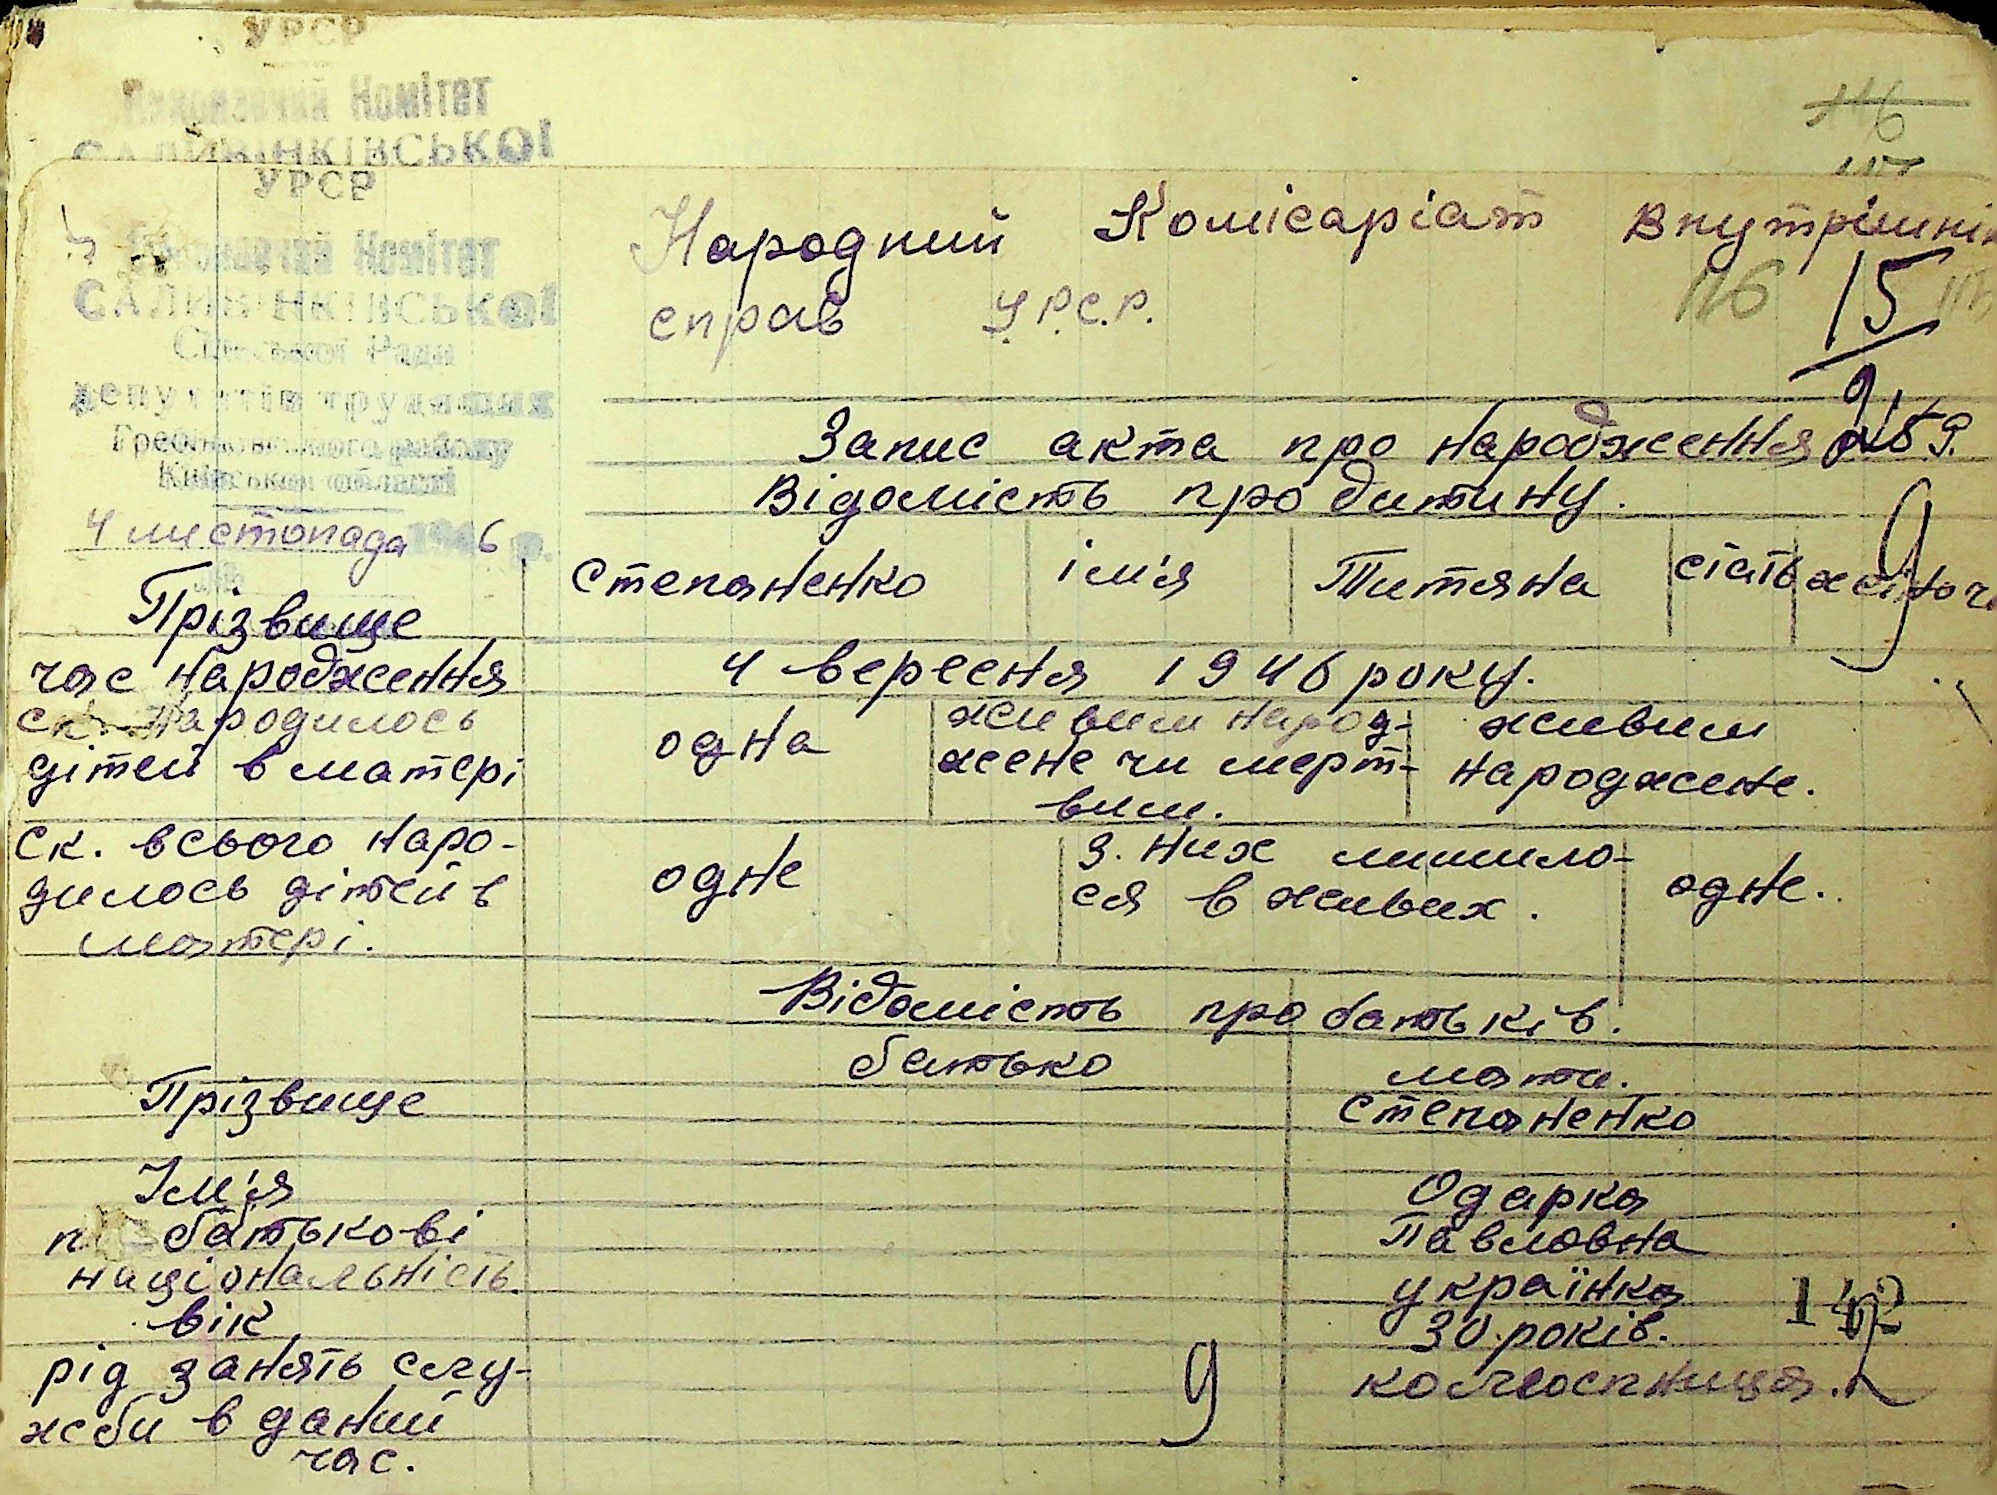 УРСР
Виконавчий Комітет
САЛИВІНКІВСЬКОЇ
116
УРСР
Виконавчий Комітет
САЛИВІНКІВСЬКОЇ
Сільської Ради
депутатів трудящих
Гребінківського району
Київської області
4 листопада 1946 р.
Народний Комісаріат Внутрішніх
справ У.Р.С.Р.
116 15
Запис акта про народження № 59.
Відомість про дитину.
Прізвище Степаненко ім'я Титяна стать жіноч
час народження 4 вересня 1946 року.
ск. народилось дітей в матері одна живим народ-
жене чи мерт-
вим. живим
народжене.
ск. всього наро-
дилось дітей в
матері. одне з них лишило-
ся в живих. одне.
Відомість про батьків.
батько мати.
Прізвище Степаненко
Ім'я Одарка
батькові Павловна
національність українка
вік 30 років.
рід занять слу-
жби в даний
час. колгоспниця.
142
9